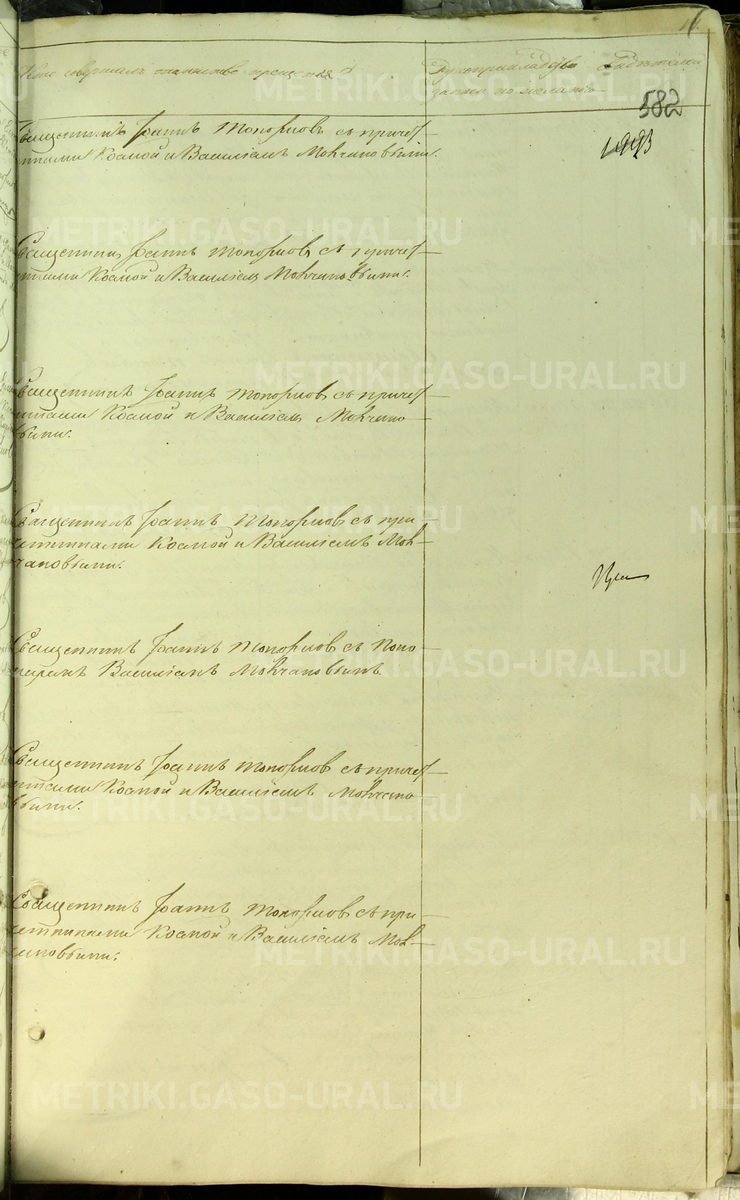 Кто совершалъ таинство крещенія
Рукоприкладство свидѣтелей
записи по желанію
582
Священникъ Іоаннъ Топорковъ съ причет-
никами Космой и Василіемъ Молчановыми.
Священникъ Іоаннъ Топорковъ съ причет-
никами Космой и Василіемъ Молчановыми.
Священникъ Іоаннъ Топорковъ съ причет-
никами Космой и Василіемъ Молчано-
выми.
Священникъ Іоаннъ Топорковъ съ при-
четниками Космой и Василіемъ Мол-
чановыми.
Священникъ Іоаннъ Топорковъ съ Поно-
маремъ Василіемъ Молчановымъ.
Священникъ Іоаннъ Топорковъ съ причет-
никами Космой и Василіемъ Молчано-
выми.
Священникъ Іоаннъ Топорковъ съ при-
четниками Космой и Василіемъ Мол-
чановыми.
METRIKI.GASO-URAL.RU